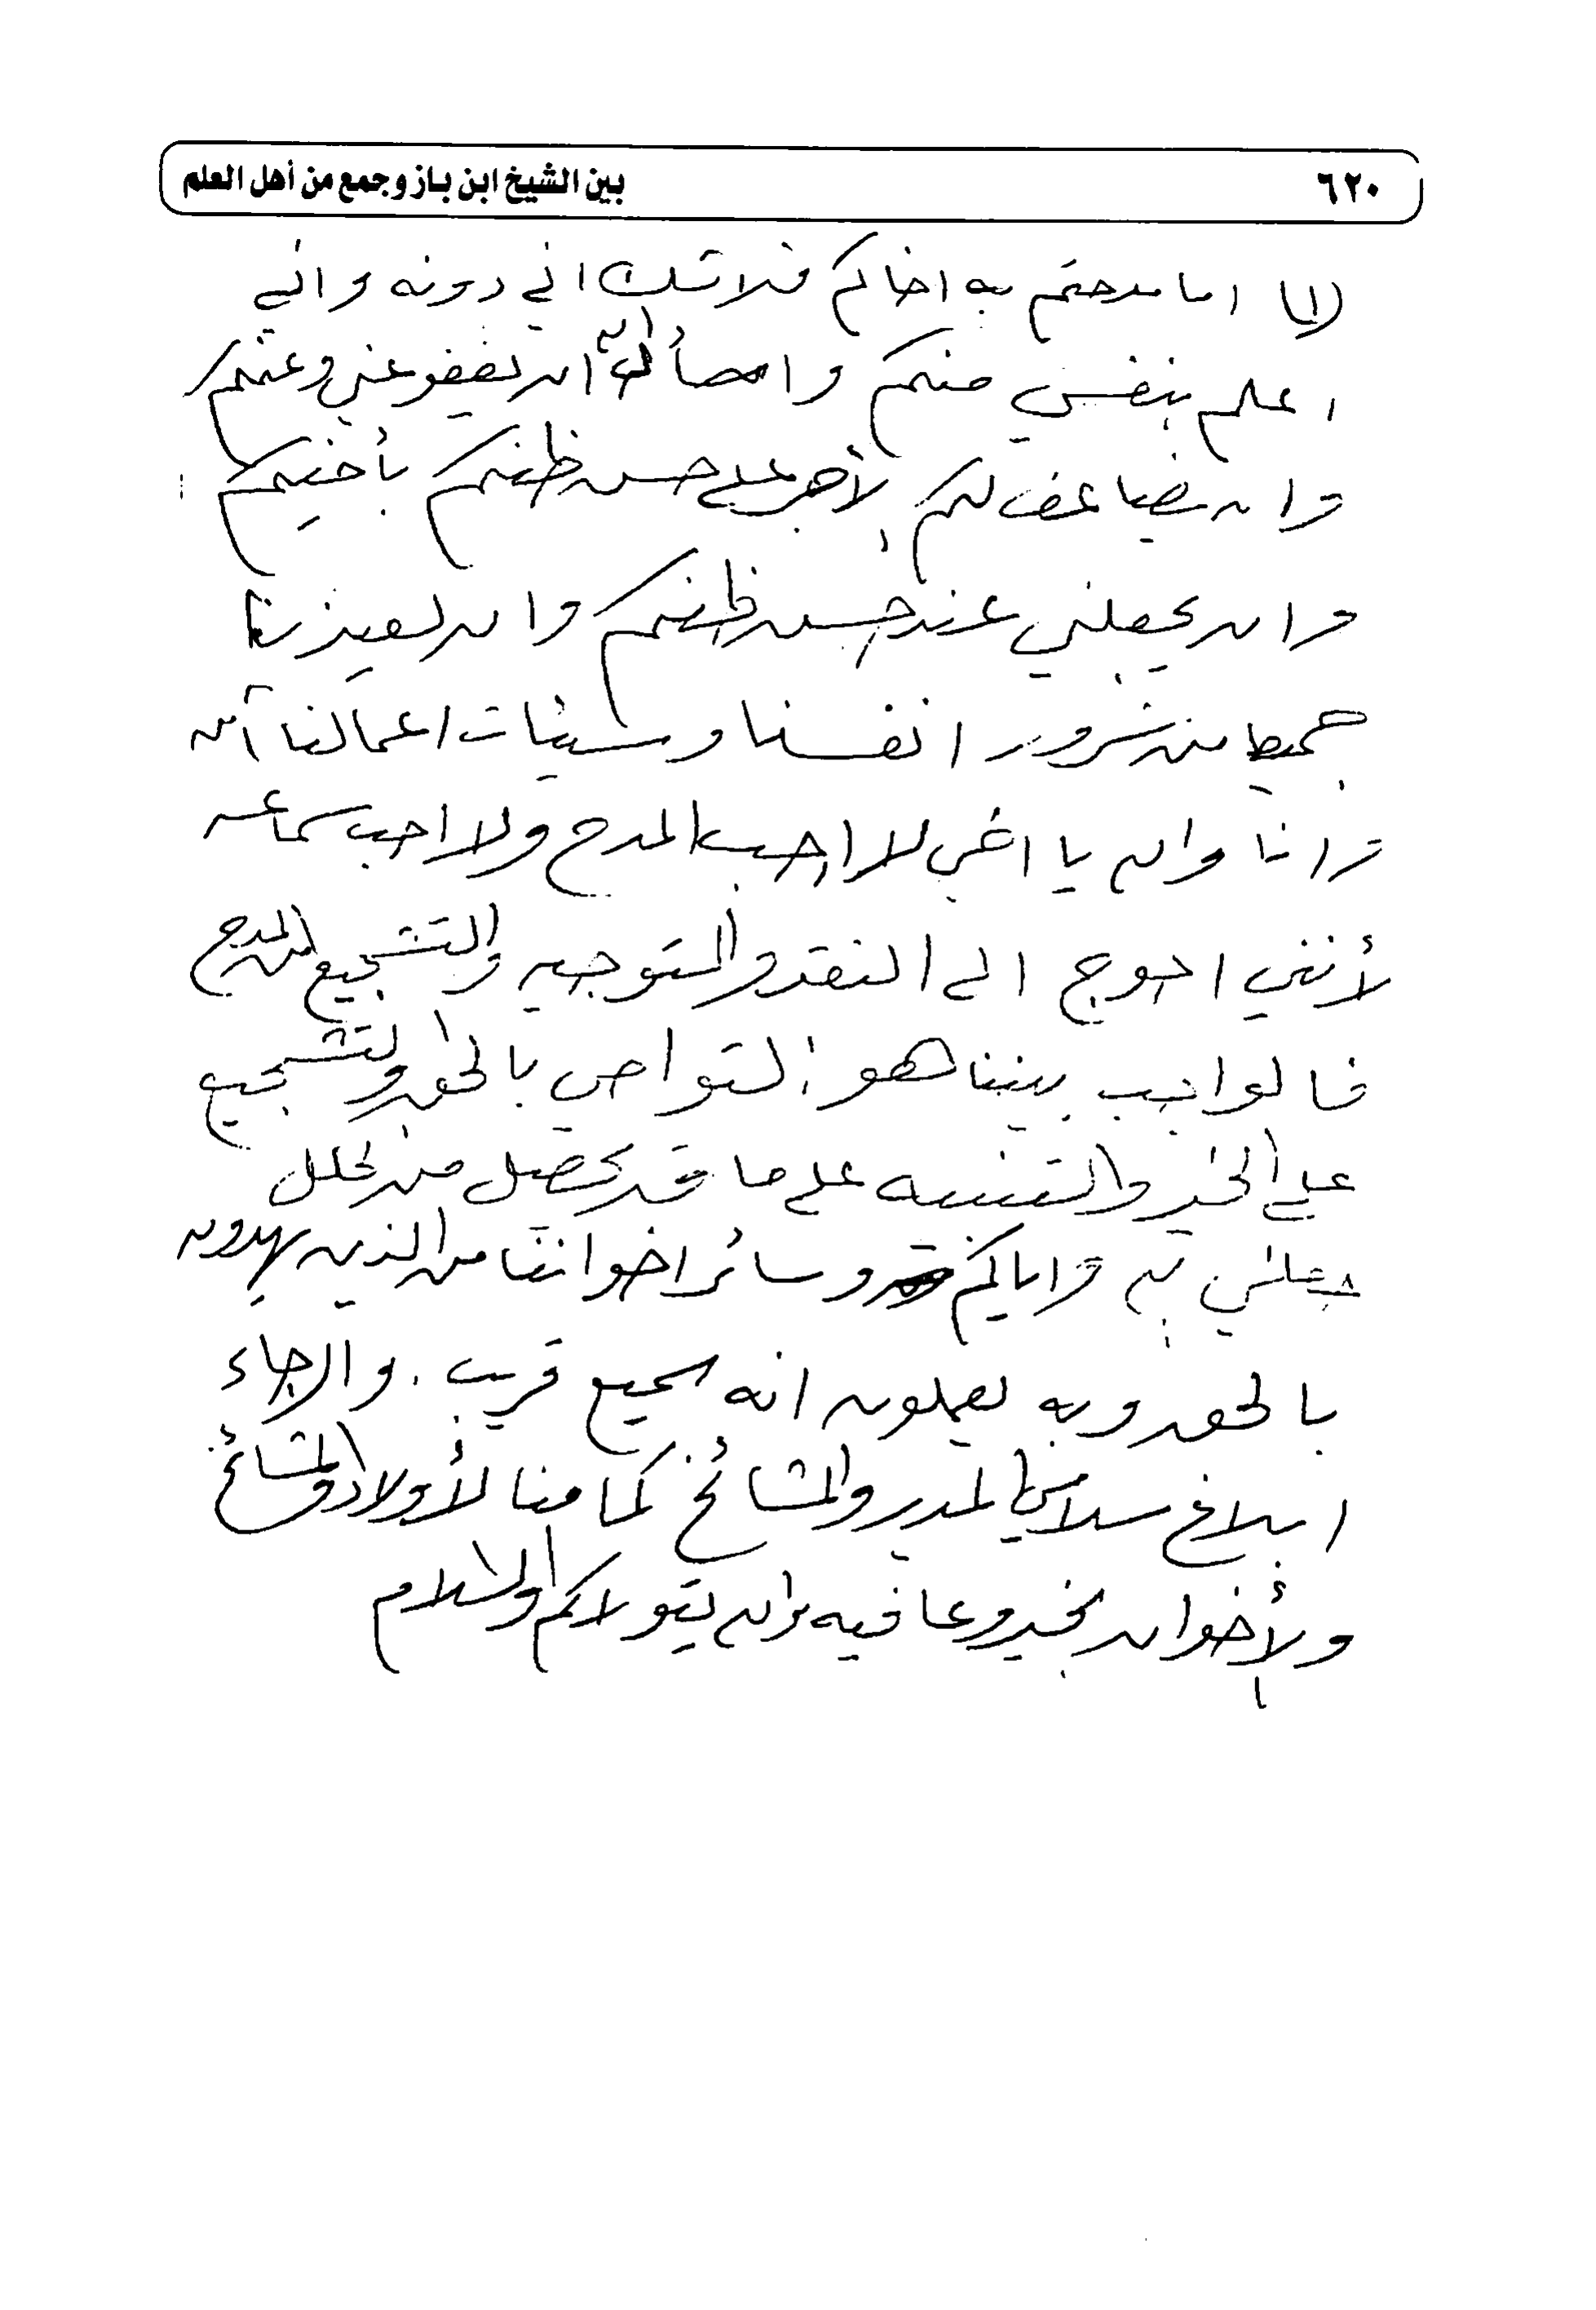 ٦٢٠
بين الشيخ ابن باز وجمع من أهل العلم
اما مدحتم به اخاكم فلا شك اني دونه واني
اعلم بنفسي منكم واسأل الله ان يعفو عني وعنكم
وان يضاعف لكم الأجر على حسن ظنكم بأخيكم
وان يجعلني عند حسن ظنكم وان يعيذنا
جميعا من شرور انفسنا وسيئات اعمالنا آمين
وانا والله يا اخي لا احب المدح ولا احب سماعه
لأنني احوج الى النقد والتوجيه والتشجيع من المدح
فالواجب بيننا هو التواصي بالحق والتشجيع
على الخير والتنبيه على ما قد يحصل من خلل
جعلني الله واياكم وسائر اخواننا من الذين يهدون
بالحق وبه يعملون انه سميع قريب . والرجاء
ابلاغ سلامي المدير والمشائخ كما منا الأولاد والمشائخ
والأخوان بخير وعافيه والله يتولاكم والسلام